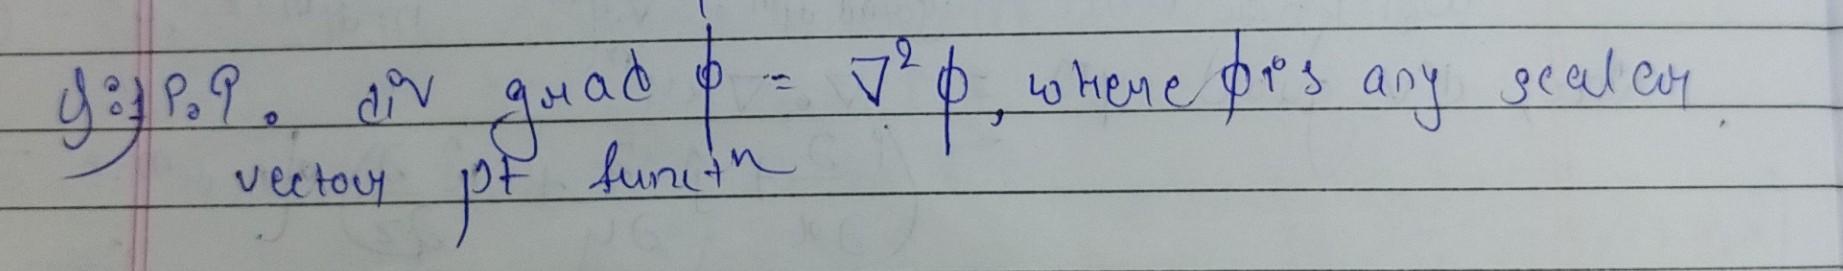 P.P. div grad ϕ = ∇²ϕ, where ϕ is any scalar
vector pt functn